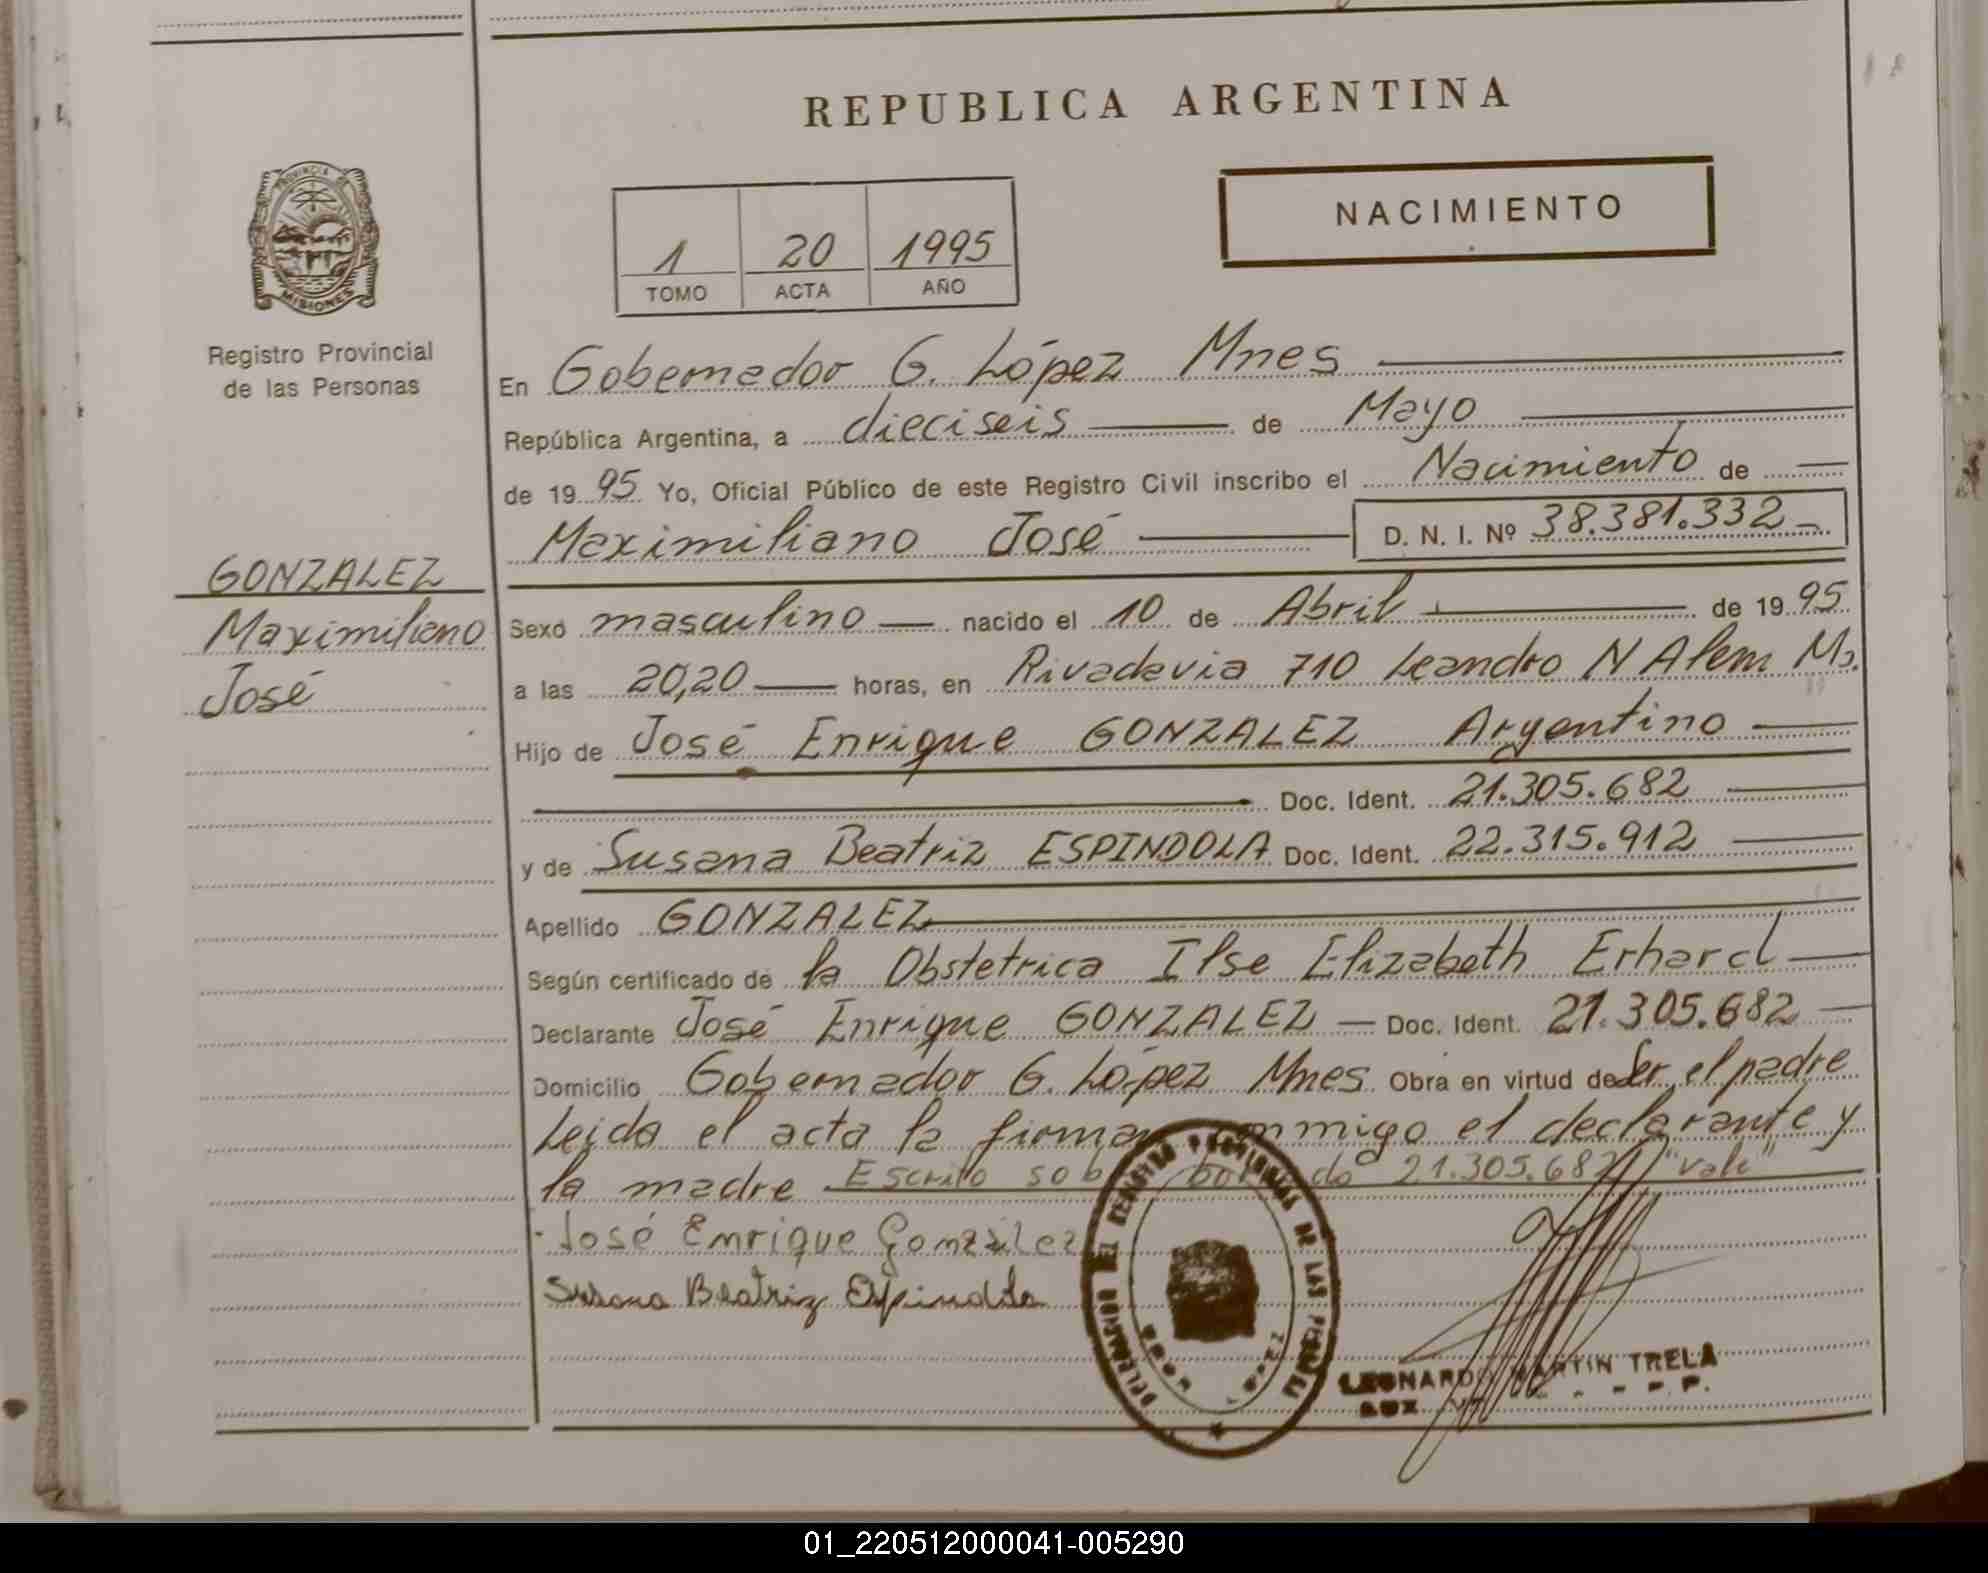 REPUBLICA ARGENTINA
NACIMIENTO
1 20 1995
TOMO ACTA AÑO
PROVINCIA DE
MISIONES
Registro Provincial
de las Personas
GONZALEZ
Maximiliano
José
En Gobernador G. López Mnes
República Argentina, a dieciseis de Mayo
de 1995 Yo, Oficial Público de este Registro Civil inscribo el Nacimiento de
Maximiliano José D. N. I. Nº 38.381.332
Sexo masculino nacido el 10 de Abril de 1995
a las 20,20 horas, en Rivadavia 710 Leandro N Alem Ms.
Hijo de José Enrique GONZALEZ Argentino
Doc. Ident. 21.305.682
y de Susana Beatriz ESPINDOLA Doc. Ident. 22.315.912
Apellido GONZALEZ
Según certificado de la Obstetrica Ilse Elizabeth Erhard
Declarante José Enrique GONZALEZ Doc. Ident. 21.305.682
Domicilio Gobernador G. López Mnes Obra en virtud de Ser el padre
Leida el acta la firman conmigo el declarante y
la madre Escrito sob borrado 21.305.682 "vale"
José Enrique González
Susana Beatriz Espindola
DELEGACION DEL REGISTRO PROVINCIAL DE LAS PERSONAS
LEONARDO MARTIN TRELA
01_220512000041-005290